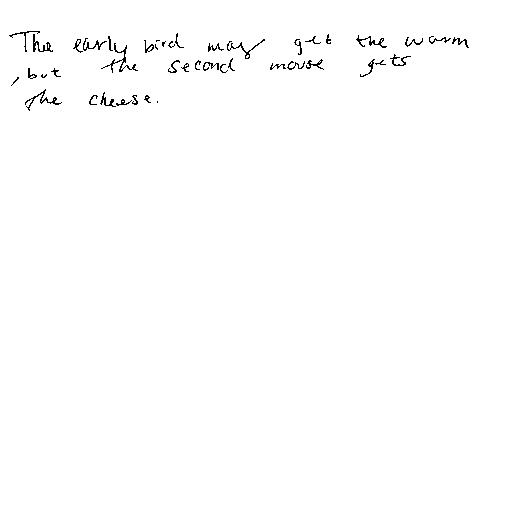 The early bird may get the worm
, but the second mouse gets
the cheese.